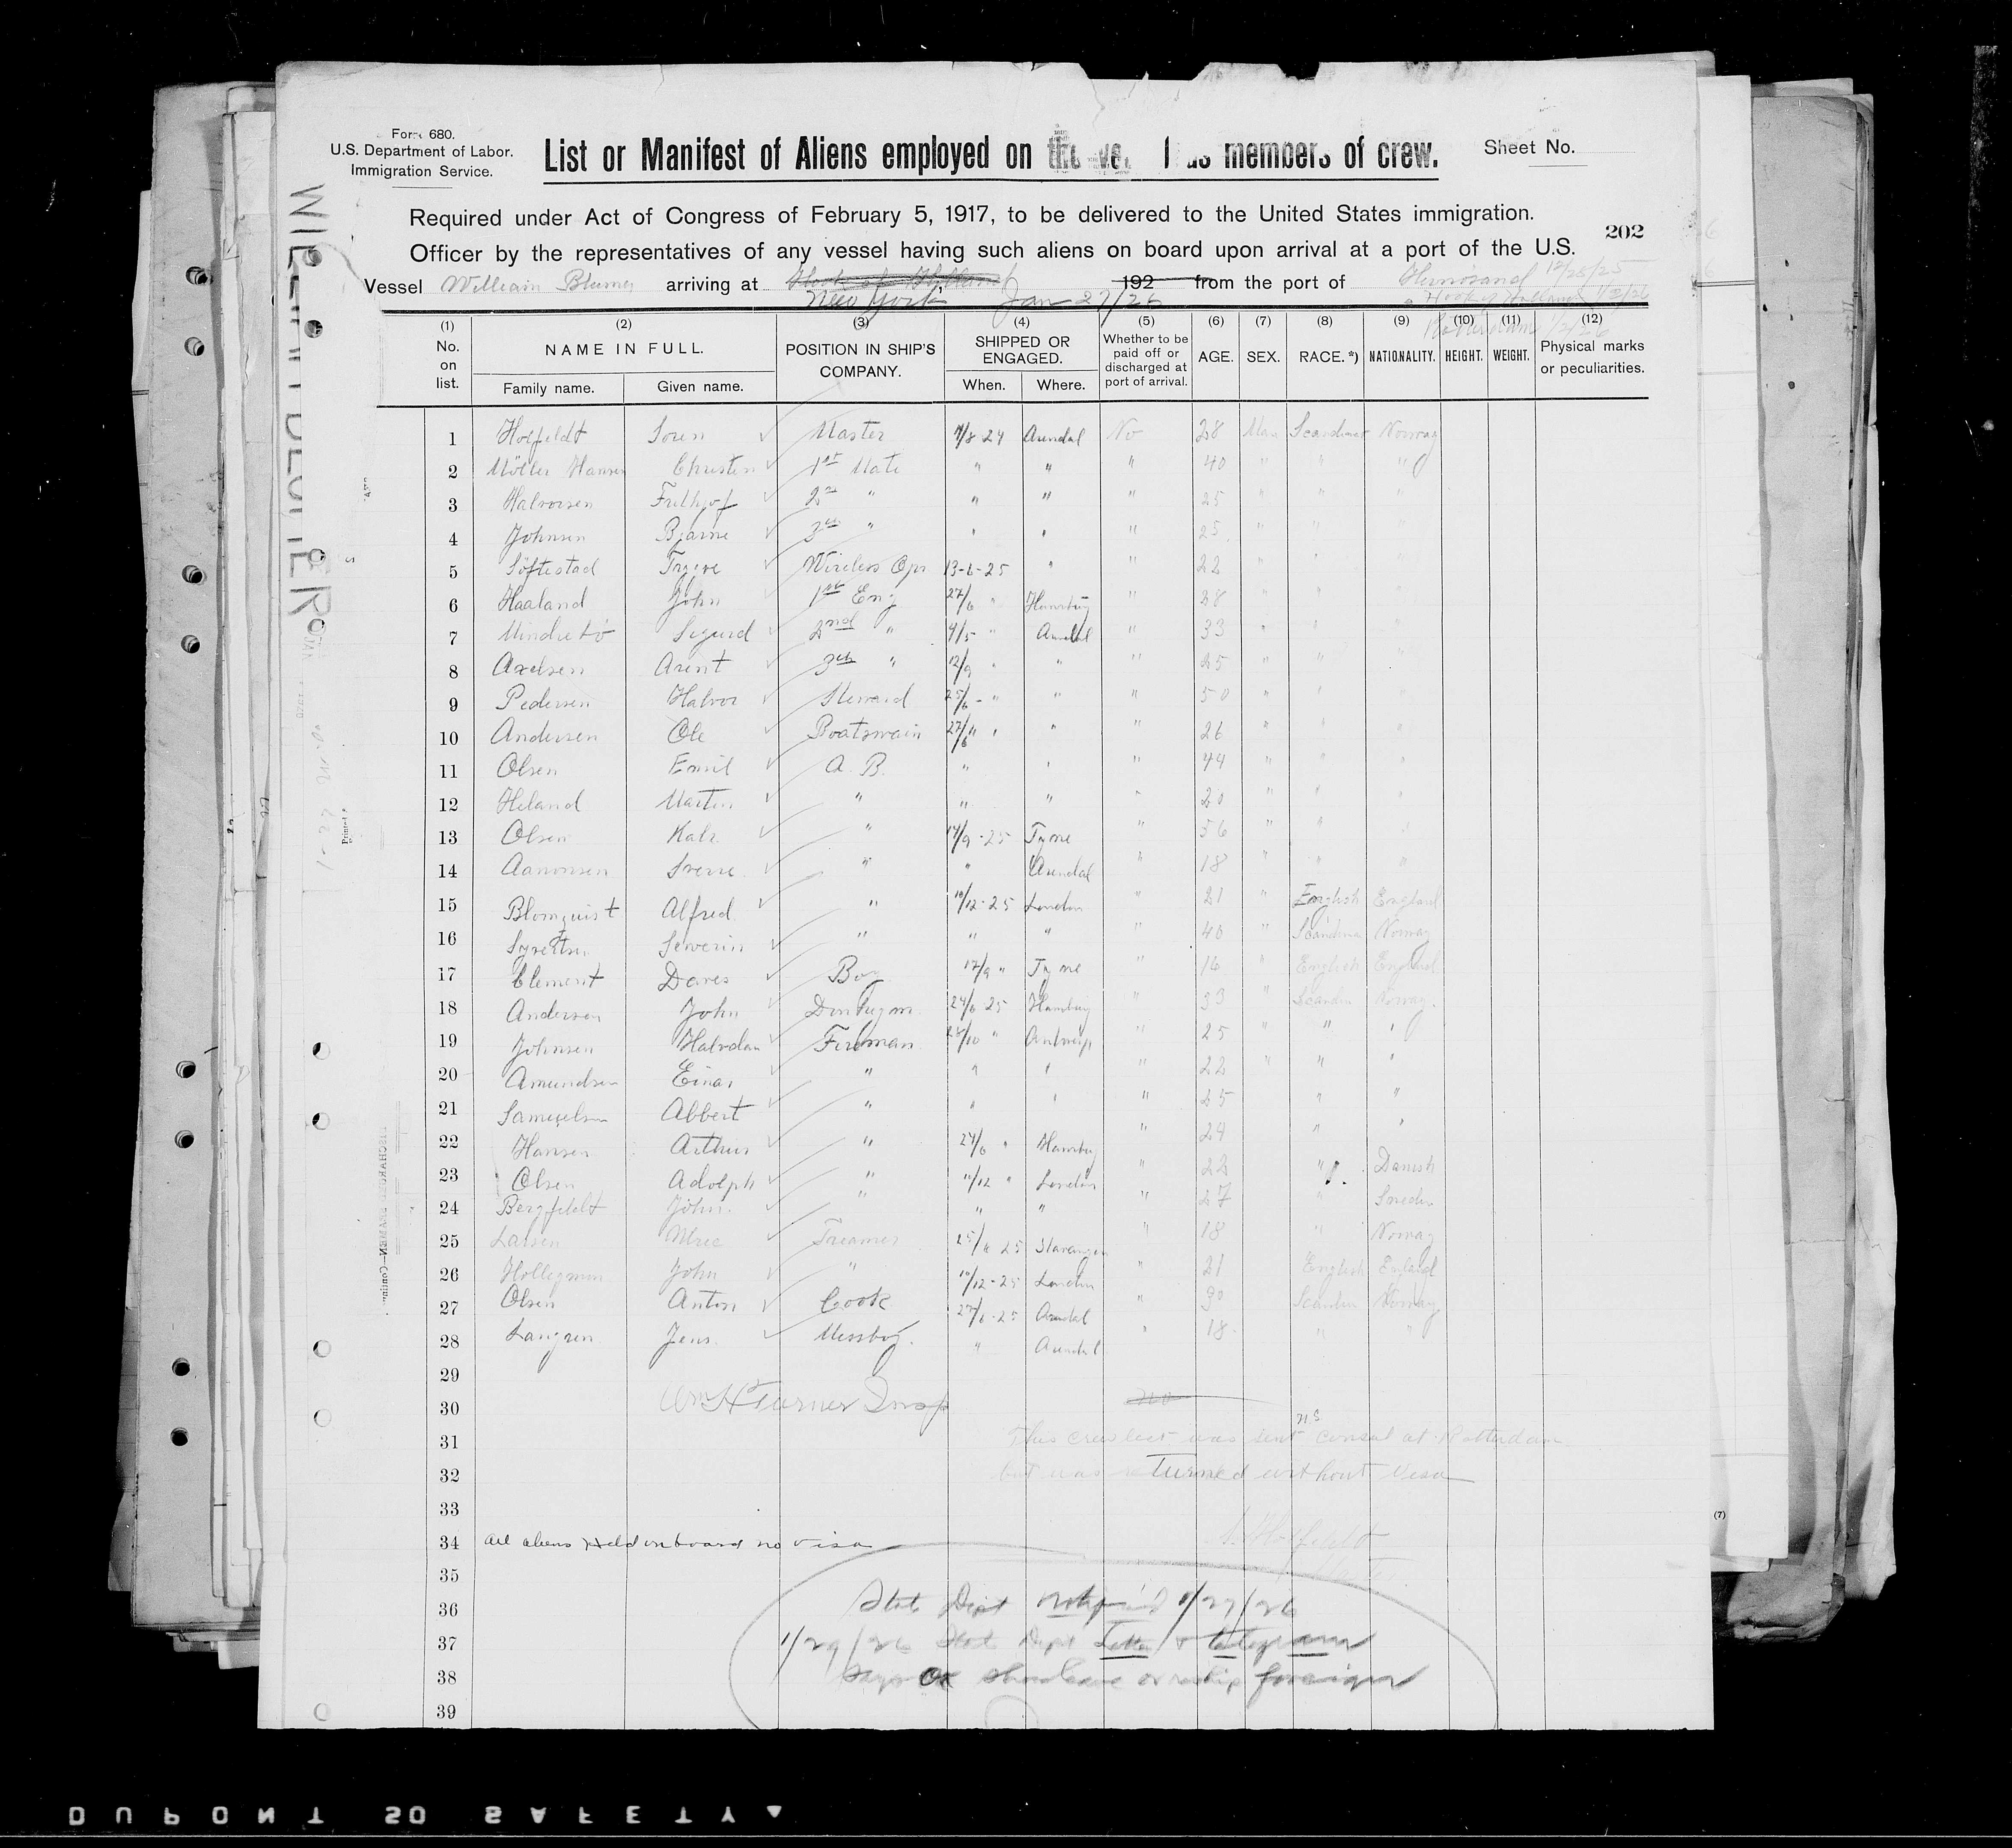 Form 680.
U.S. Department of Labor.
Immigration Service.
List or Manifest of Aliens employed on the ve. l as members of crew.
Sheet No.
Required under Act of Congress of February 5, 1917, to be delivered to the United States immigration.
Officer by the representatives of any vessel having such aliens on board upon arrival at a port of the U.S.
202
Vessel William Blumer arriving at Hook of Holland, 192 from the port of 12/25/25
New York Jan 27/26 " Hook of Holland 1/2/26
Rotterdam 1/2/26
(1) (2) (3) (4) (5) (6) (7) (8) (9) (10) (11) (12)
No. on list. NAME IN FULL. POSITION IN SHIP'S COMPANY. SHIPPED OR ENGAGED. Whether to be paid off or discharged at port of arrival. AGE. SEX. RACE. *) NATIONALITY. HEIGHT. WEIGHT. Physical marks or peculiarities.
Family name. Given name. When. Where.
1 Hoefeldt Soren Master 4/8 24 Arendal No 28 Man Scandinav Norway
2 Möller Hansen Christen 1st Mate " " " 40 " " "
3 Halvorsen Frithjof 2nd " " " " 25 " " "
4 Johnsen Bjarne 3rd " " " " 25 " " "
5 Söftestad Trygve Wireless Opr 13-6-25 " " 22 " " "
6 Haaland John 1st Eng 27/6 " Hamburg " 28 " " "
7 Sigurd 2nd " 4/5 " Arendal " 33 " " "
8 Axelsen Arent 3rd " 12/9 " " " 25 " " "
9 Pedersen Halvor Steward 25/6 - " " " 50 " " "
10 Andersen Ole Boatswain 27/6 " " " 26 " " "
11 Olsen Emil A. B. " " " 44 " " "
12 Heland Martin " " " " 20 " " "
13 Olsen " 14/9 -25 Tyne " 56 " " "
14 Aanonsen Sverre " " Arendal " 18 " " "
15 Blomquist Alfred " 10/12-25 London " 21 " English England
16 Syvertsen Severin " " " " 40 " Scandinav Norway
17 Clement Daves Boy 17/9 " Tyne " 16 " English England
18 Andersen John Donkeym 24/6 25 Hamburg " 33 " Scandin Norway
19 Johnsen Halvdan Fireman 28/10 " Antwerp " 25 " " "
20 Amundsen Einar " " " " 22 " " "
21 Samuelsen Abbert " " " " 25 " "
22 Hansen Arthur " 24/6 " Hamburg " 24 " "
23 Olsen Adolph " 11/12 " London " 22 " Danish
24 Bergfeldt John " " " " 27 " Sweden
25 Larsen Trimmer 25/8 25 Stavanger " 18 " Norway
26 John " 10/12-25 London " 21 English England
27 Olsen Anton Cook 27/6-25 Arendal " 30 Scandin Norway
28 Langren Jens Messboy. " Arendal " 18 " "
29
30 Wm H Turner Insp no
31 This crew list was sent U.S consul at Rotterdam
32 but was returned without visa
33
34 all aliens held on board no visa S. Hoefeldt
35 Master
36 State Dept notified 1/27/26
37 1/29/26 State Dept Letter & telegram
38 says OK shore leave or reship foreign
39
Printed
(7)
DUPONT SO SAFETY